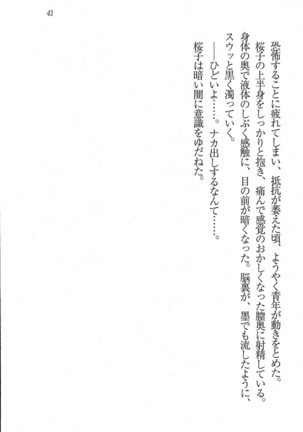 恐怖することに疲れてしまい、抵抗が萎えた頃、ようやく青年が動きをとめた。
桜子の上半身をしっかりと抱き、痛んで感覚のおかしくなった膣奥に射精している。
身体の奥で液体のしぶく感触に、目の前が暗くなった。脳裏が、墨でも流したように、
スウッと黒く濁っていく。
――ひどいよ……。ナカ出しするなんて……。
桜子は暗い闇に意識をゆだねた。
41